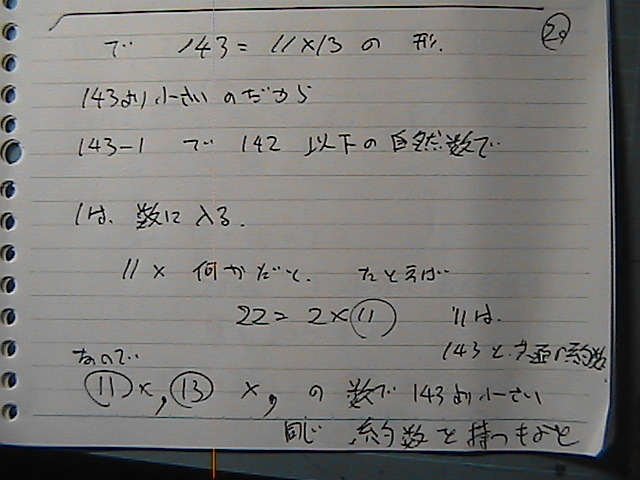 20
で 143 = 11×13 の 形.
143より小さいのだから
143-1 で 142 以下の自然数で
1は、数に入る.
11 × 何かだと、 たとえば
22 = 2×11 11は、
143と共通の約数
なので
11×, 13 ×, の 数で 143より小さい
同じ 約数を持つものを